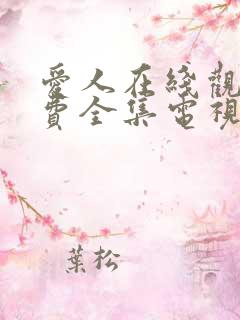 愛人在綫觀
費全集電視
葉松